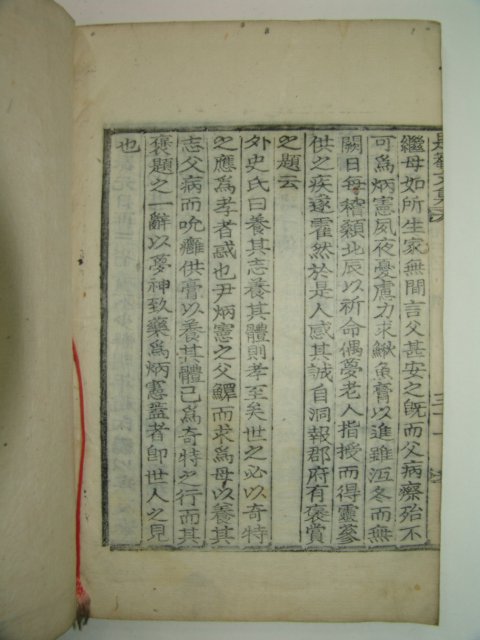 繼母如所生家無間言父甚安之旣而父病瘵殆不
可爲炳憲夙夜憂慮力求鰍魚膏以進雖沍冬而無
闕日每稽顙北辰以祈命偶夢老人指授而得靈蔘
供之疾遂霍然於是人感其誠自洞報郡府有褒賞
之題云
外史氏曰養其志養其體則孝至矣世之必以奇特
之應爲孝者惑也尹炳憲之父鰥而求爲母以養其
志父病而吮癰供膏以養其體已爲奇特之行而其
褒題之一辭以夢神致藥爲炳憲蓋者卽世人之見
也